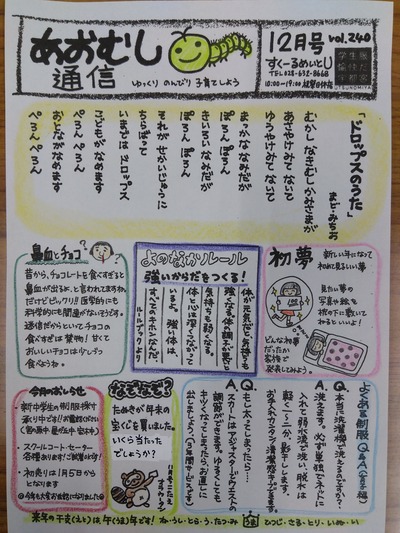 あおむし
通信
ゆっくり のんびり 子育てしよう
12月号 vol.240
すくーるめいとU
TEL 028-632-8668
10:00〜19:00
UTSUNOMIYA
「ドロップスのうた」
まど・みちお
むかし なきむしかみさまが
あさやけみて ないて
ゆうやけみて ないて
まっかな なみだが
ぽろん ぽろん
きいろい なみだが
ぽろん ぽろん
それが せかいじゅうに
ちらばって
いまでは ドロップス
こどもが なめます
ぺろん ぺろん
おとなが なめます
ぺろん ぺろん
鼻血とチョコ
昔から、チョコレートを食べすぎると
鼻血が出るよ、と言われてますね。
だけどビックリ!! 医学的にも
科学的にも関連がないそうです。
迷信だからといってチョコの
食べすぎは禁物! 甘くて
おいしいチョコは少しづつ
食べようね。
よのなかルール
強いからだをつくる!
体が元気だと、気持ちも
強くなる。体の調子が悪いと
気持ちも弱くなる。
体と心は深くつながって
いるよ。強い体は、
すべてのキホンなんだ。
ルールブックより
初夢
新しい年になって
初めて見るらしい夢
見たい夢の
写真や絵を
枕の下に敷いて
ねるといいよ!
どんな初夢
だったか
家族で
発表してみよう。
今月のおしらせ
・新中学生の制服採寸
承り中です!
・スクールコート・セーター
各種あります!ご試着ください!
・初売りは1月5日から
となります
◎今年も大変お世話になりました◎
なぞなぞ?
たぬきが年末の
宝くじを買いました。
いくら当たった
でしょうか?
11月号のこたえ
よくある制服Q&A
Q. 本当に洗濯機で洗えるのですか?
A. 洗えます。必ず単独でネットに
入れて弱水流で洗い、脱水は
軽く1〜2分、影干しします。
Q. もし太ってしまったら…
A. スカートはアジャスターでウエストの
調節ができます。
来年の干支(えと)は、午(うま)年です! ね・うし・とら・う・たつ・み うま ひつじ・さる・とり・いぬ・い